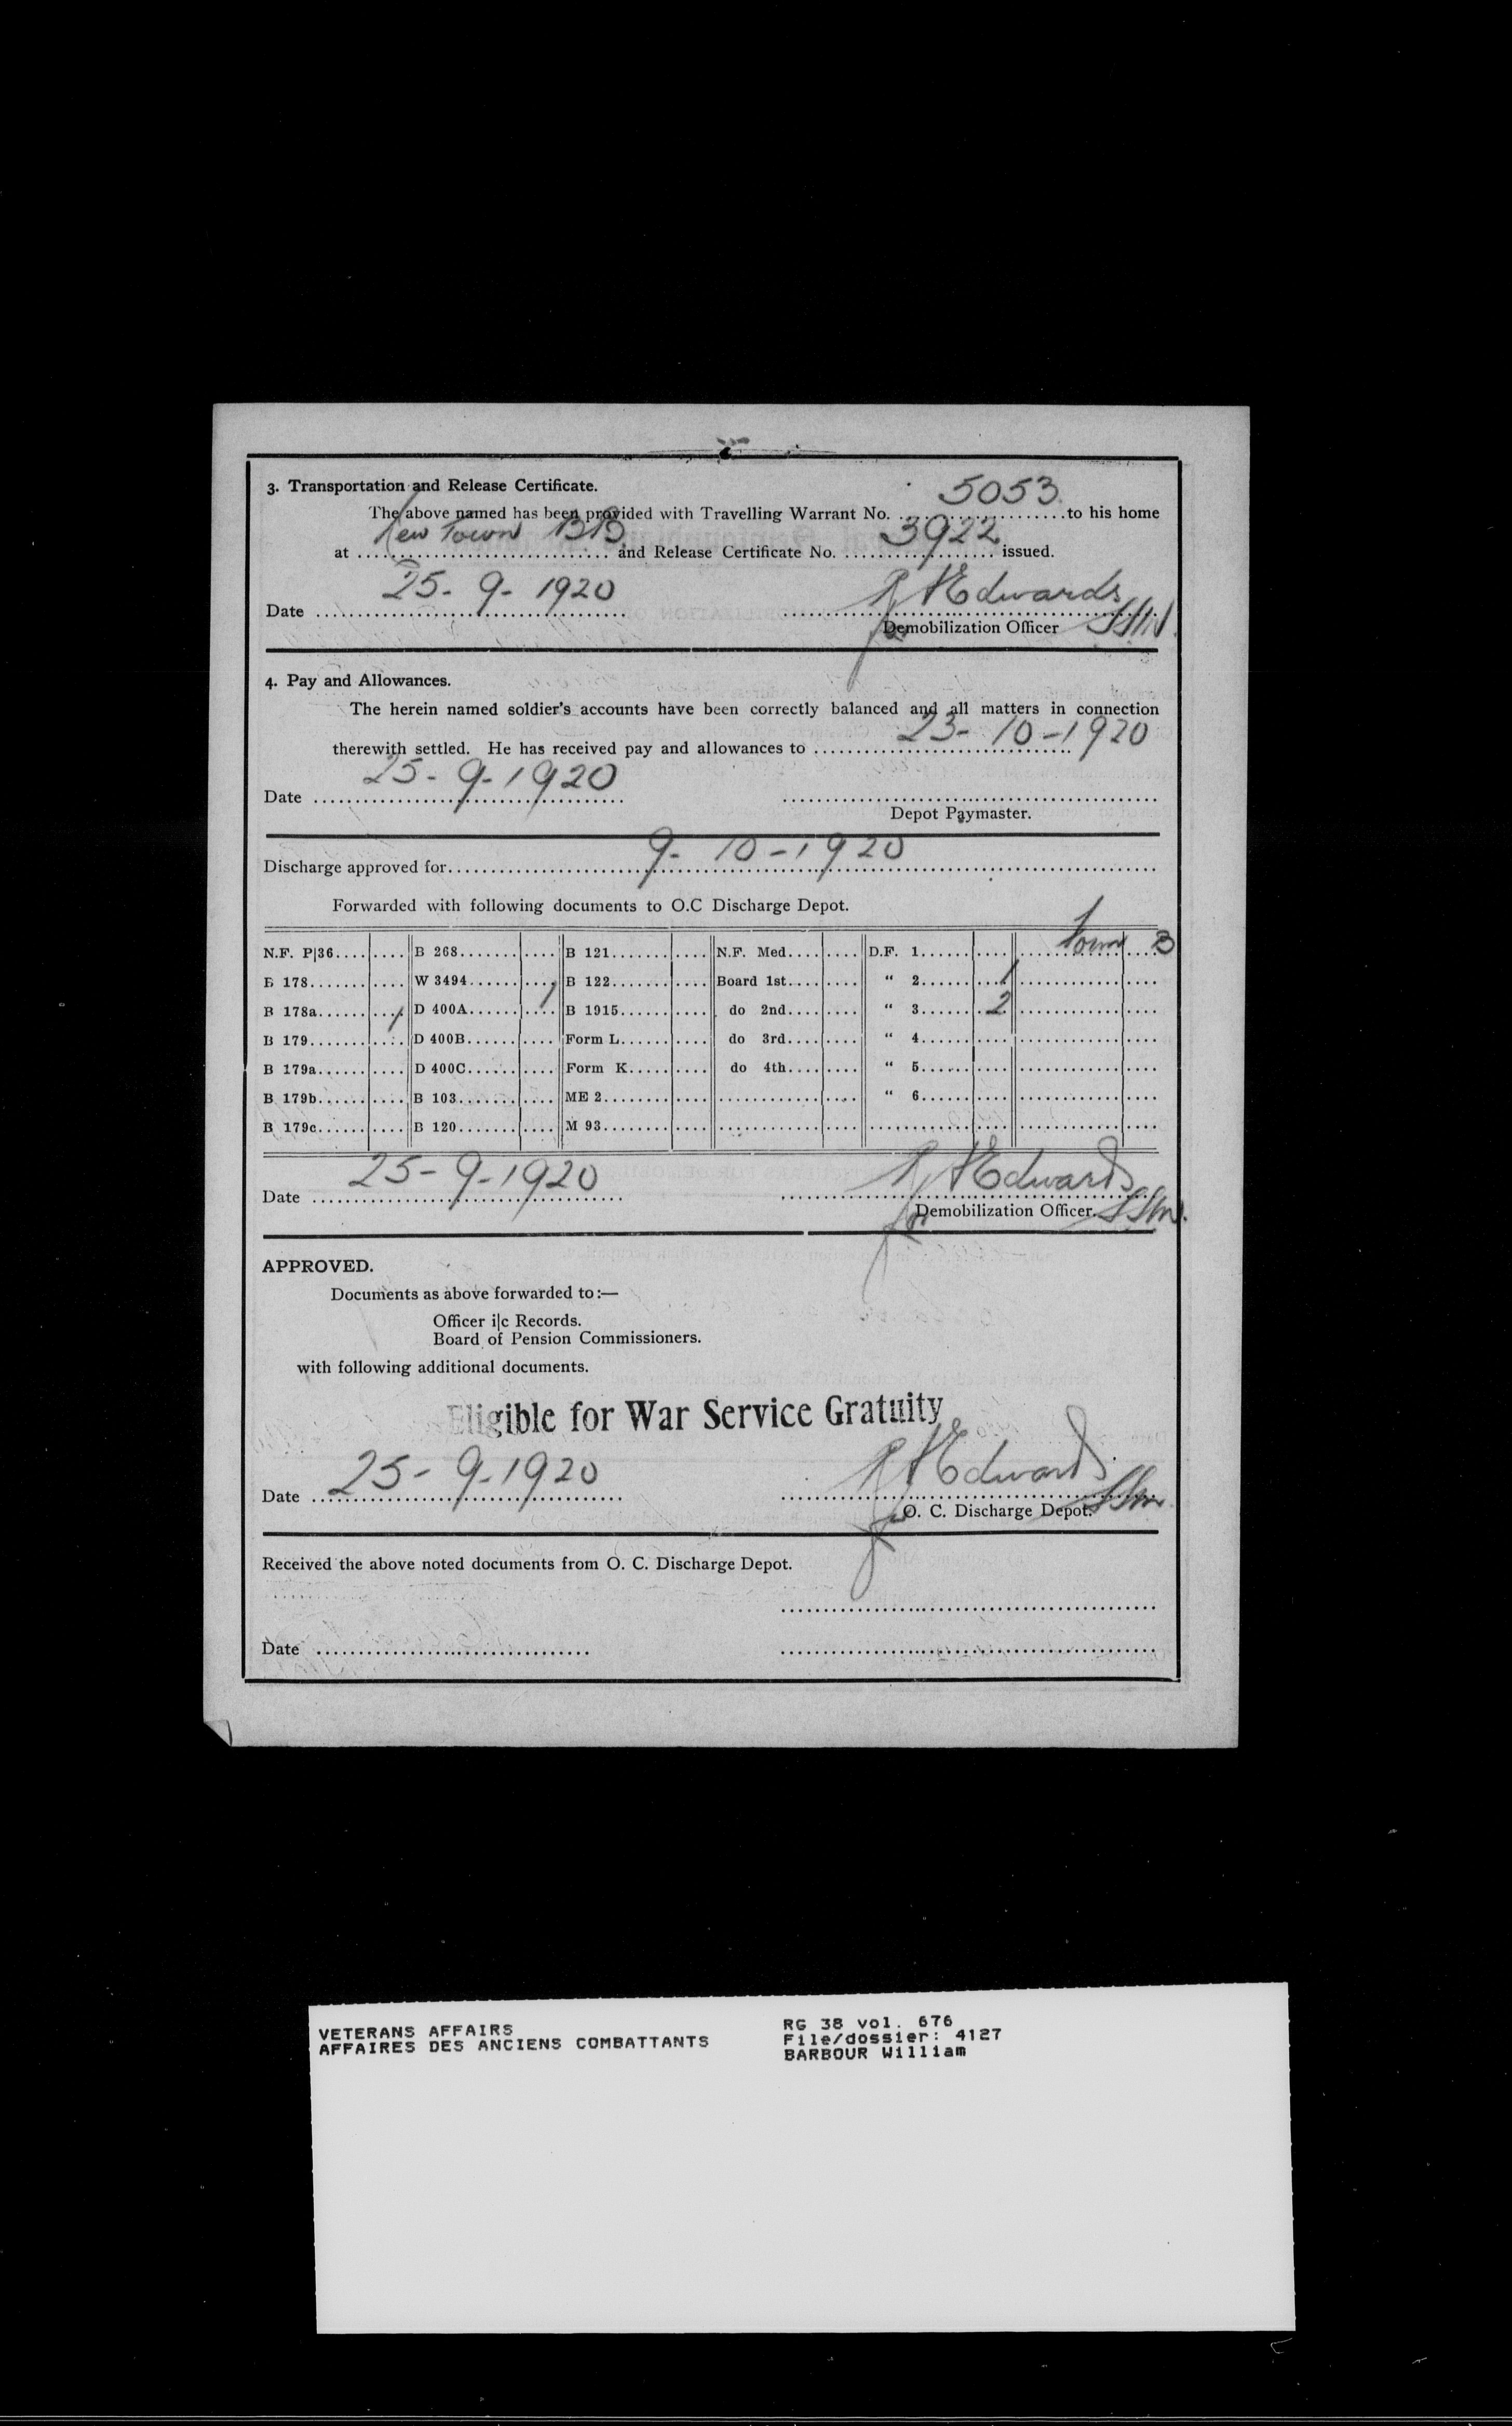 3. Transportation and Release Certificate.
The above named has been provided with Travelling Warrant No. 5053 to his home
at New Town BB and Release Certificate No. 3922 issued.
Date 25-9-1920 Edwards
Demobilization Officer
4. Pay and Allowances.
The herein named soldier's accounts have been correctly balanced and all matters in connection
therewith settled. He has received pay and allowances to 23-10-1920
Date 25-9-1920
Depot Paymaster.
Discharge approved for 9-10-1920
Forwarded with following documents to O.C Discharge Depot.
N.F. P|36 B 268 B 121 N.F. Med. D.F. 1 Form B
B 178 W 3494 B 122 Board 1st " 2 1
B 178a 1 D 400A 1 B 1915 do 2nd " 3 2
B 179 D 400B Form L do 3rd " 4
B 179a D 400C Form K do 4th " 5
B 179b B 103 ME 2 " 6
B 179c B 120 M 93
Date 25-9-1920 Edwards
for Demobilization Officer.
APPROVED.
Documents as above forwarded to:—
Officer i|c Records.
Board of Pension Commissioners.
with following additional documents.
Eligible for War Service Gratuity
Date 25-9-1920 Edwards
for O. C. Discharge Depot.
Received the above noted documents from O. C. Discharge Depot.
Date
VETERANS AFFAIRS
AFFAIRES DES ANCIENS COMBATTANTS
RG 38 vol. 676
File/dossier: 4127
BARBOUR William